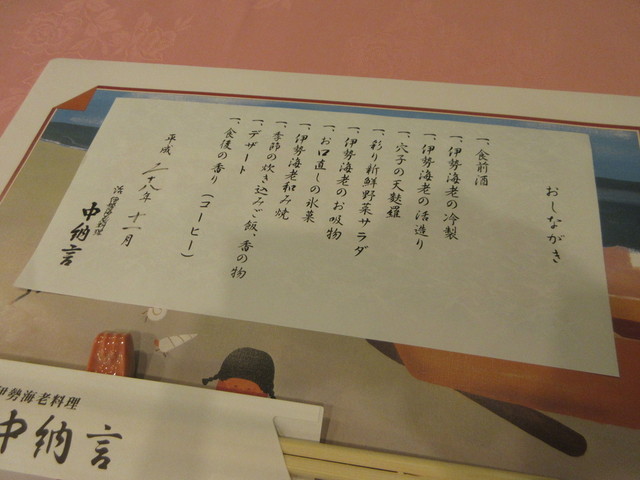 おしながき
一、食前酒
一、伊勢海老の冷製
一、伊勢海老の活造り
一、穴子の天麩羅
一、彩り新鮮野菜サラダ
一、伊勢海老のお吸物
一、お口直しの氷菓
一、伊勢海老和み焼
一、季節の炊き込みご飯、香の物
一、デザート
一、食後の香り（コーヒー）
平成 二十八年 十一月
活 伊勢海老料理
中納言
伊勢海老料理
中納言